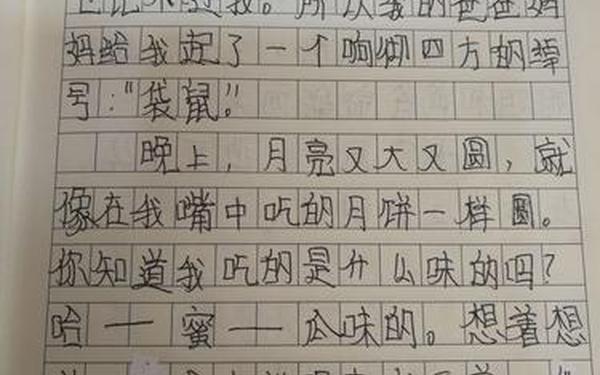 也比不过我。所以我的爸爸妈
妈给我起了一个响彻四方的绰
号："袋鼠。"
晚上，月亮又大又圆，就
像在我嘴中吃的月饼一样圆。
你知道我吃的是什么味的吗？
哈一蜜一瓜味的。想着想